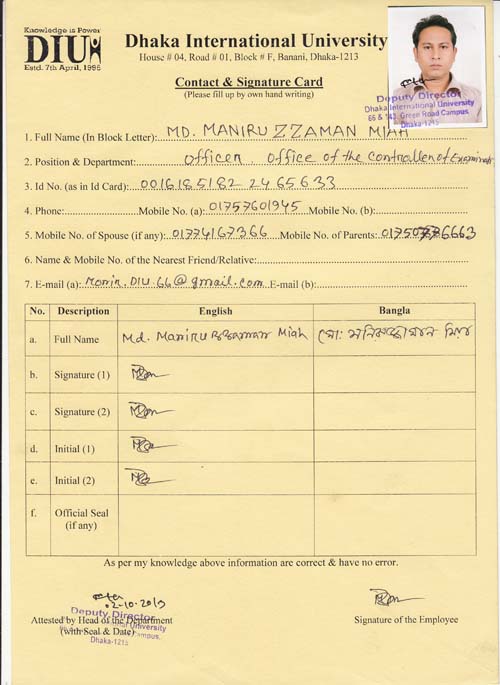 Knowledge is Power
DIU
Estd. 7th April, 1995
Dhaka International University
House # 04, Road # 01, Block # F, Banani, Dhaka-1213
Contact & Signature Card
(Please fill up by own hand writing)
Deputy Director
Dhaka International University
66 & 143, Green Road Campus,
Dhaka-1215
1. Full Name (In Block Letter): MD. MANIRUZZAMAN MIAH
2. Position & Department: Officer, Office of the Controller of Examinations
3. Id No. (as in Id Card): 00161851822465633
4. Phone: Mobile No. (a): 01757601945 Mobile No. (b):
5. Mobile No. of Spouse (if any): 01774167366 Mobile No. of Parents:
6. Name & Mobile No. of the Nearest Friend/Relative:
7. E-mail (a): monir.DIU66@gmail.com E-mail (b):
No. Description English Bangla
a. Full Name Md. Maniruzzaman Miah মো: মনিরুজ্জামান মিয়া
b. Signature (1)
c. Signature (2)
d. Initial (1)
e. Initial (2)
f. Official Seal
(if any)
As per my knowledge above information are correct & have no error.
02-10-2013
Deputy Director
Attested by Head of the Department
International University
(with Seal & Date)
Campus,
Dhaka-1215
Signature of the Employee